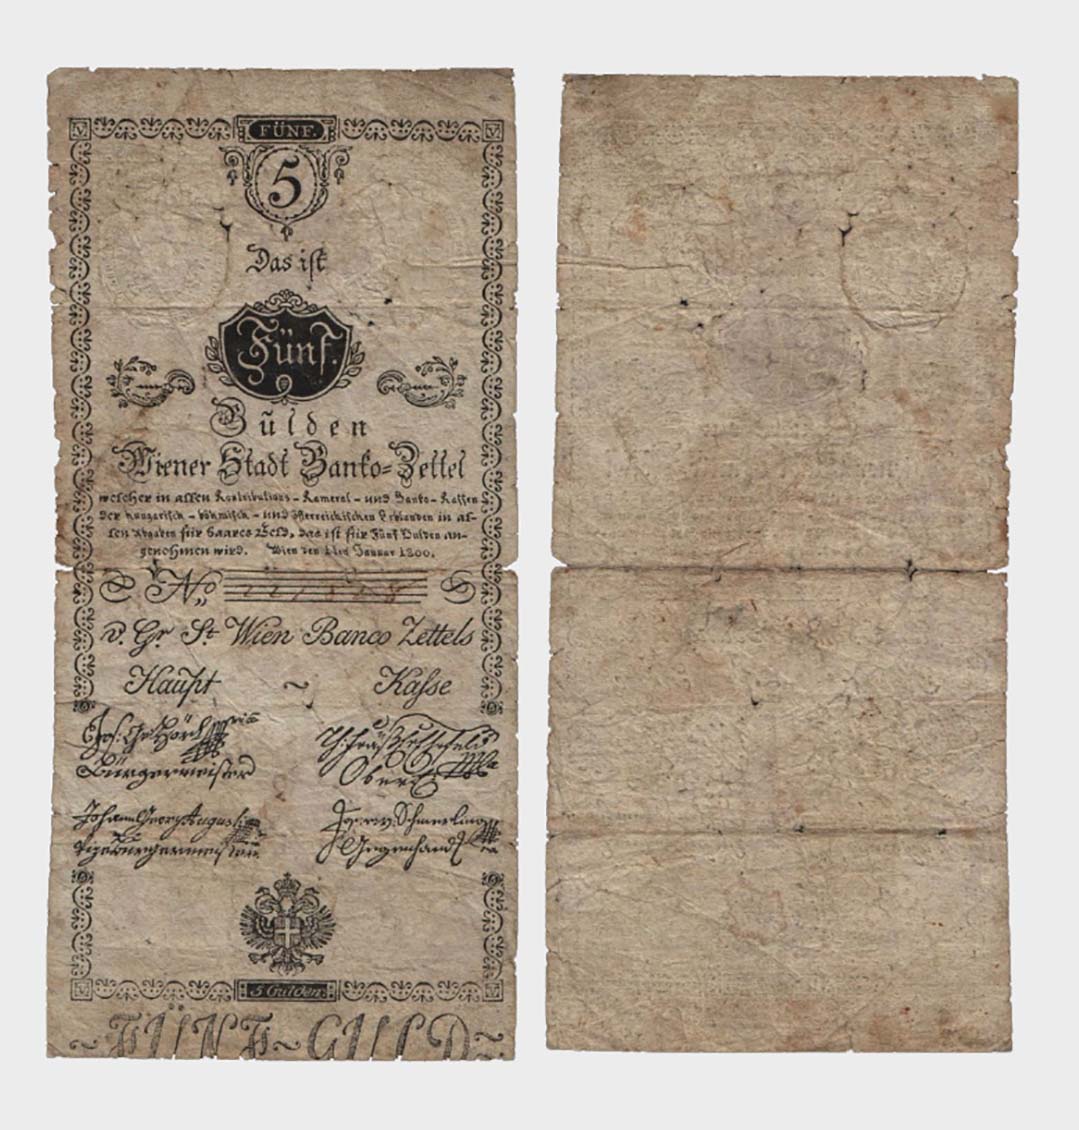 V FÜNF. V
5
Das ist
Fünf.
Gülden
Wiener Stadt Banko=Zettel
welcher in allen Kontributions-Kameral-und Banko-Kassen
der hungarisch-böhmisch-und österreichischen Erblanden in al-
len Abgaben für baares Geld, das ist für Fünf Gulden an-
genohmen wird. Wien den 1ten Januar 1800.
No
v. Gr. St. Wien Banco Zettels
Haupt ~ Kasse
Bürgermeister
Johann Georg Augusti
Vizebürgermeister
V 5 Gulden. V
~FÜNF~GULD~